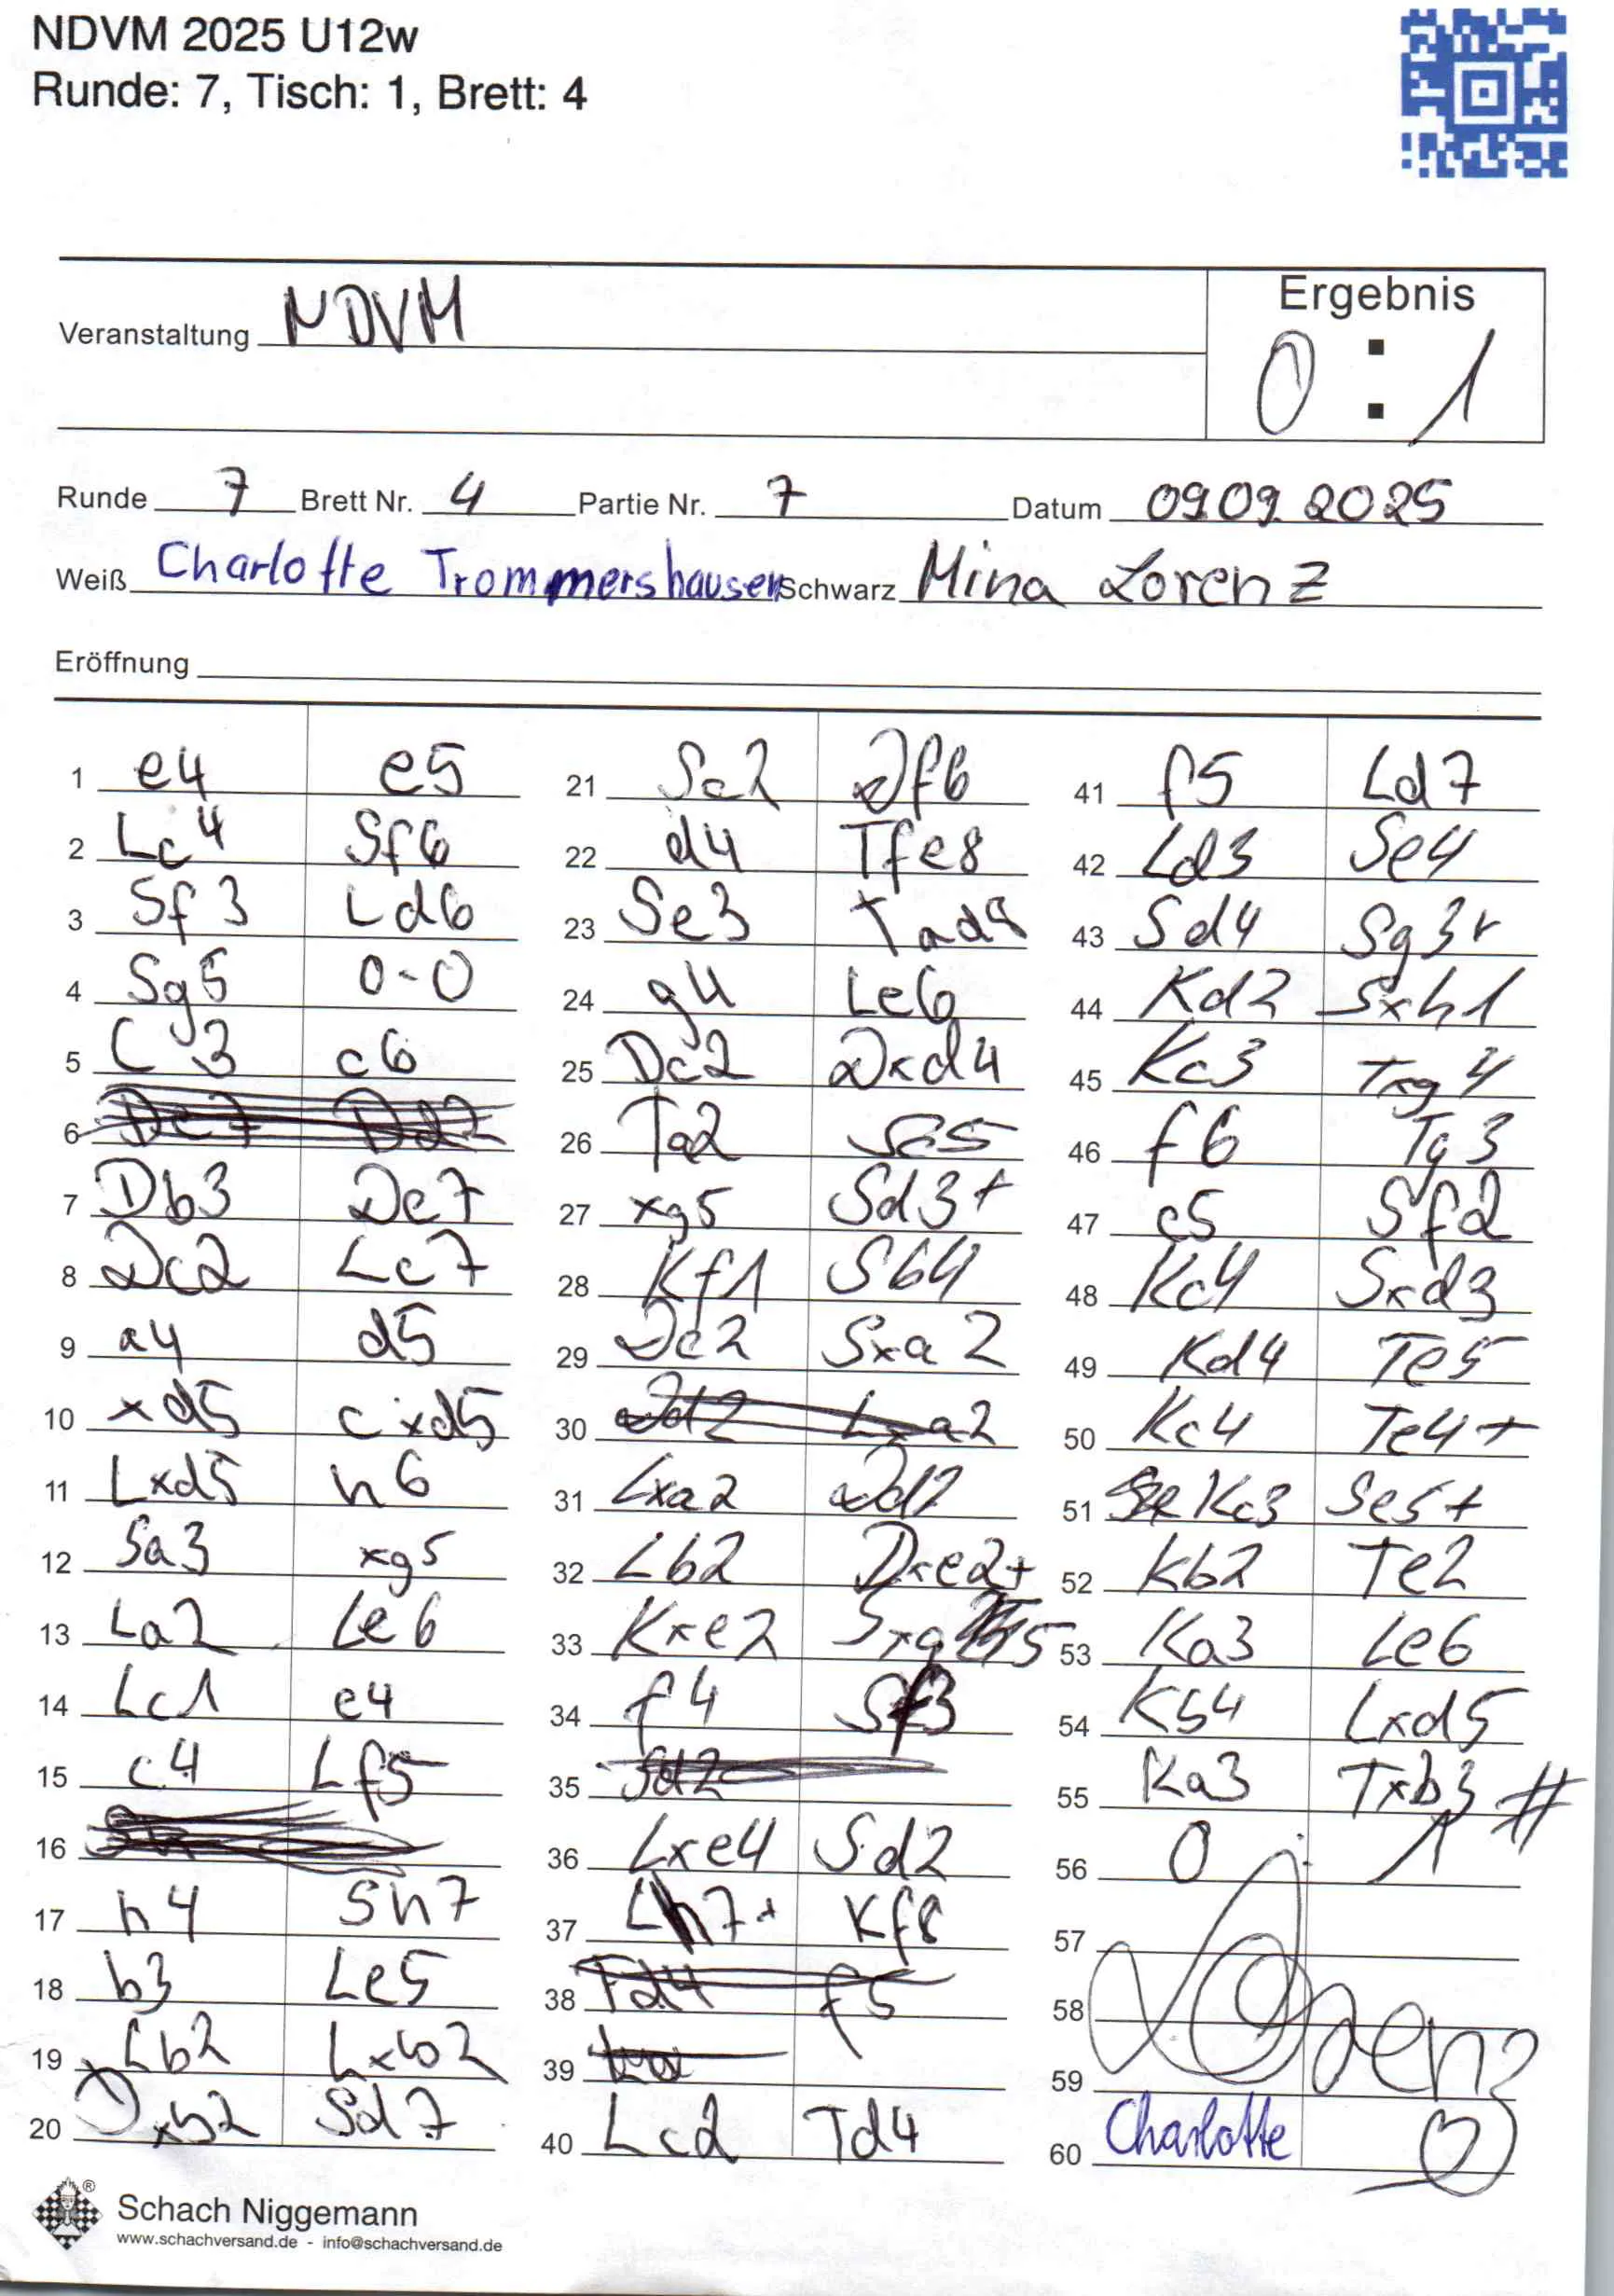 NDVM 2025 U12w
Runde: 7, Tisch: 1, Brett: 4
Veranstaltung NDVM
Ergebnis
0 : 1
Runde 7 Brett Nr. 4 Partie Nr. 7 Datum 09.09.2025
Weiß Charlotte Trommershausen Schwarz Mina Lorenz
Eröffnung
1 e4 e5
2 Lc4 Sf6
3 Sf3 Ld6
4 Sg5 0-0
5 C3 c6
6 De7 Dd7
7 Db3 De7
8 Dc2 Lc7
9 a4 d5
10 xd5 cxd5
11 Lxd5 h6
12 Sa3 xg5
13 La2 Le6
14 Lc1 e4
15 c4 Lf5
16
17 h4 Sh7
18 b3 Le5
19 Lb2 Lxb2
20 Dxb2 Sd7
21 Sc2 Df6
22 d4 Tfe8
23 Se3 Tad8
24 g4 Le6
25 Dc2 Dxd4
26 Ta2 Se5
27 xg5 Sd3+
28 Kf1 Sb4
29 De2 Sxa2
30 Dd2 Lxa2
31 Lxa2 Dd7
32 Lb2 Dxe2+
33 Kxe2 Sxg5
34 f4 Sf3
35 Sd2
36 Lxe4 Sd2
37 Lh7+ Kf8
38 Td4 f5
39
40 Lc2 Td4
41 f5 Ld7
42 Ld3 Se4
43 Sd4 Sg3+
44 Kd2 Sxh1
45 Kc3 Txg4
46 f6 Tg3
47 c5 Sf2
48 Kc4 Sxd3
49 Kd4 Te5
50 Kc4 Te4+
51 Kc3 Se5+
52 Kb2 Te2
53 Ka3 Le6
54 Kb4 Lxd5
55 Ka3 Txb3#
56 0 1
57
58 Lorenz
59
60 Charlotte
Schach Niggemann
www.schachversand.de - info@schachversand.de